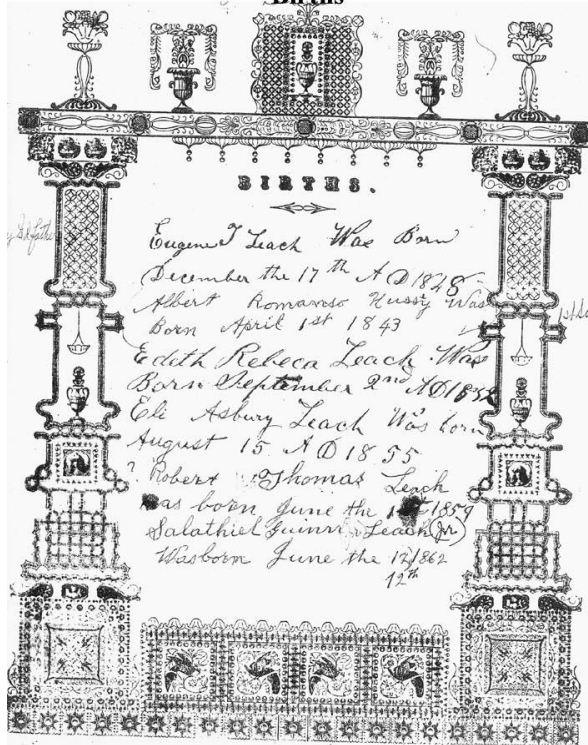 Births
BIRTHS.
Eugene T Leach Was Born
December the 17th A D 1848
Albert Romanso Hussy Was
Born April 1st 1843
Edith Rebeca Leach Was
Born September 2nd AD 185
Eli Asbury Leach Was born
August 15 A D 1855
? Robert Thomas Leach
was born June the 1859
Salathiel Guinn Leach (Jr)
Was born June the 12/1862
12th